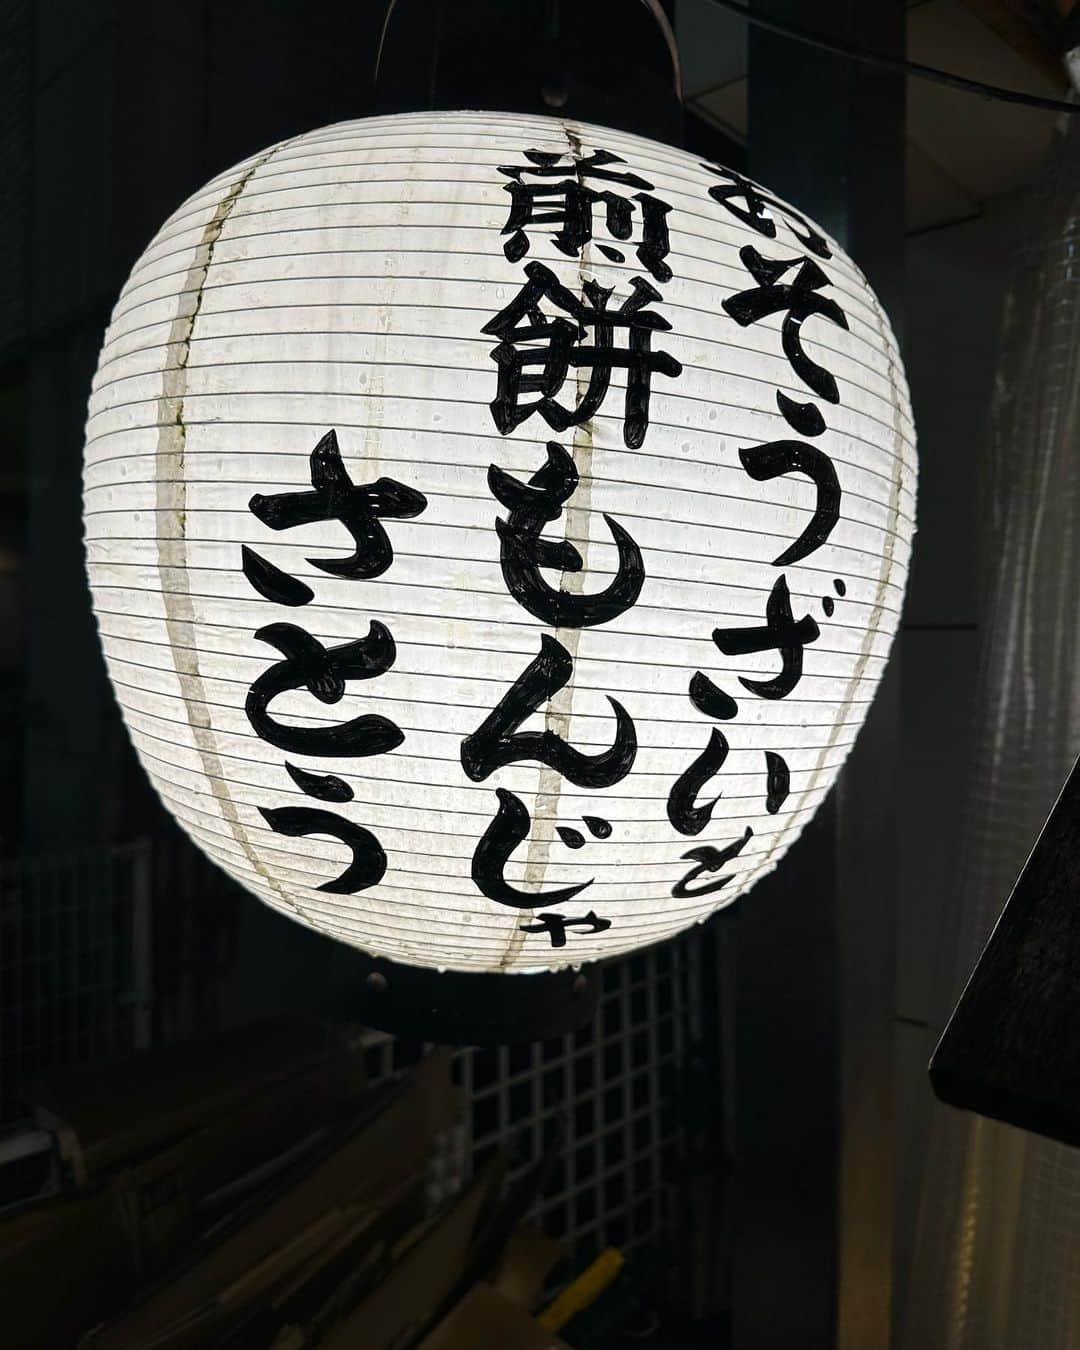 おそうざいと
煎餅もんじゃ
さとう